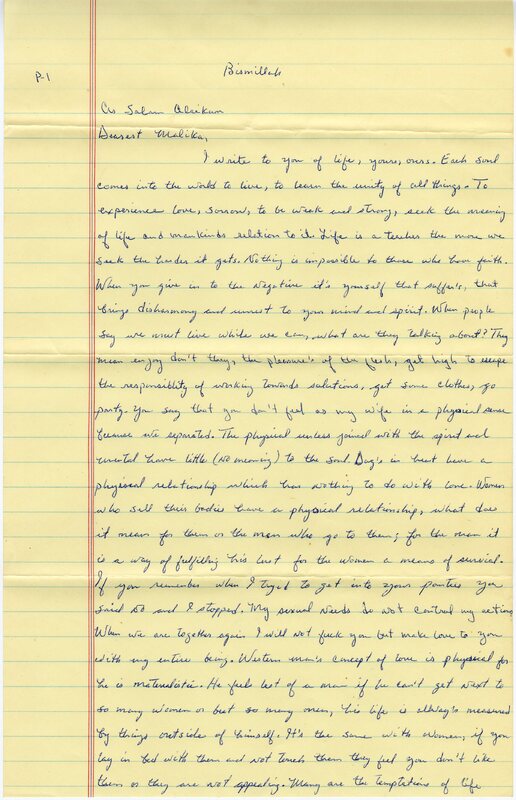 Bismillah
P-1
As Salam Alaikum
Dearest Malika,
I write to you of life, yours, ours. Each soul
comes into the world to live, to learn the unity of all things. To
experience love, sorrow, to be weak and strong, seek the meaning
of life and mankinds relation to it. Life is a teacher the more we
seek the harder it gets. Nothing is impossible to those who have faith.
When you give in to the Negative it's yourself that suffer's, that
brings disharmony and unrest to your mind and spirit. When people
say we must live while we can, what are they talking about? They
mean enjoy don't they, the pleasure's of the flesh, get high to escape
the responsiblity of working towards solutions, get some clothes, go
party. You say that you don't feel as my wife in a physical sense
because we separated. The physical unless joined with the spirit and
mental have little (no meaning) to the soul. Dog's in heat have a
physical relationship which has nothing to do with love. Women
who sell their bodies have a physical relationship, what does
it mean for them or the men who go to them; for the man it
is a way of fulfilling his lust for the women a means of survival.
If you remember when I tryed to get into your panties you
said NO and I stopped. My sexual needs do not control my actions
When we are together again I will not fuck you but make love to you
with my entire being. Western man's concept of love is physical for
he is materalistic. He feels less of a man if he can't get next to
so many women or beat so many men, his life is allway's measured
by things outside of himself. It's the same with women, if you
lay in bed with them and not touch them they feel you don't like
them or they are not appealing. Many are the temptations of life